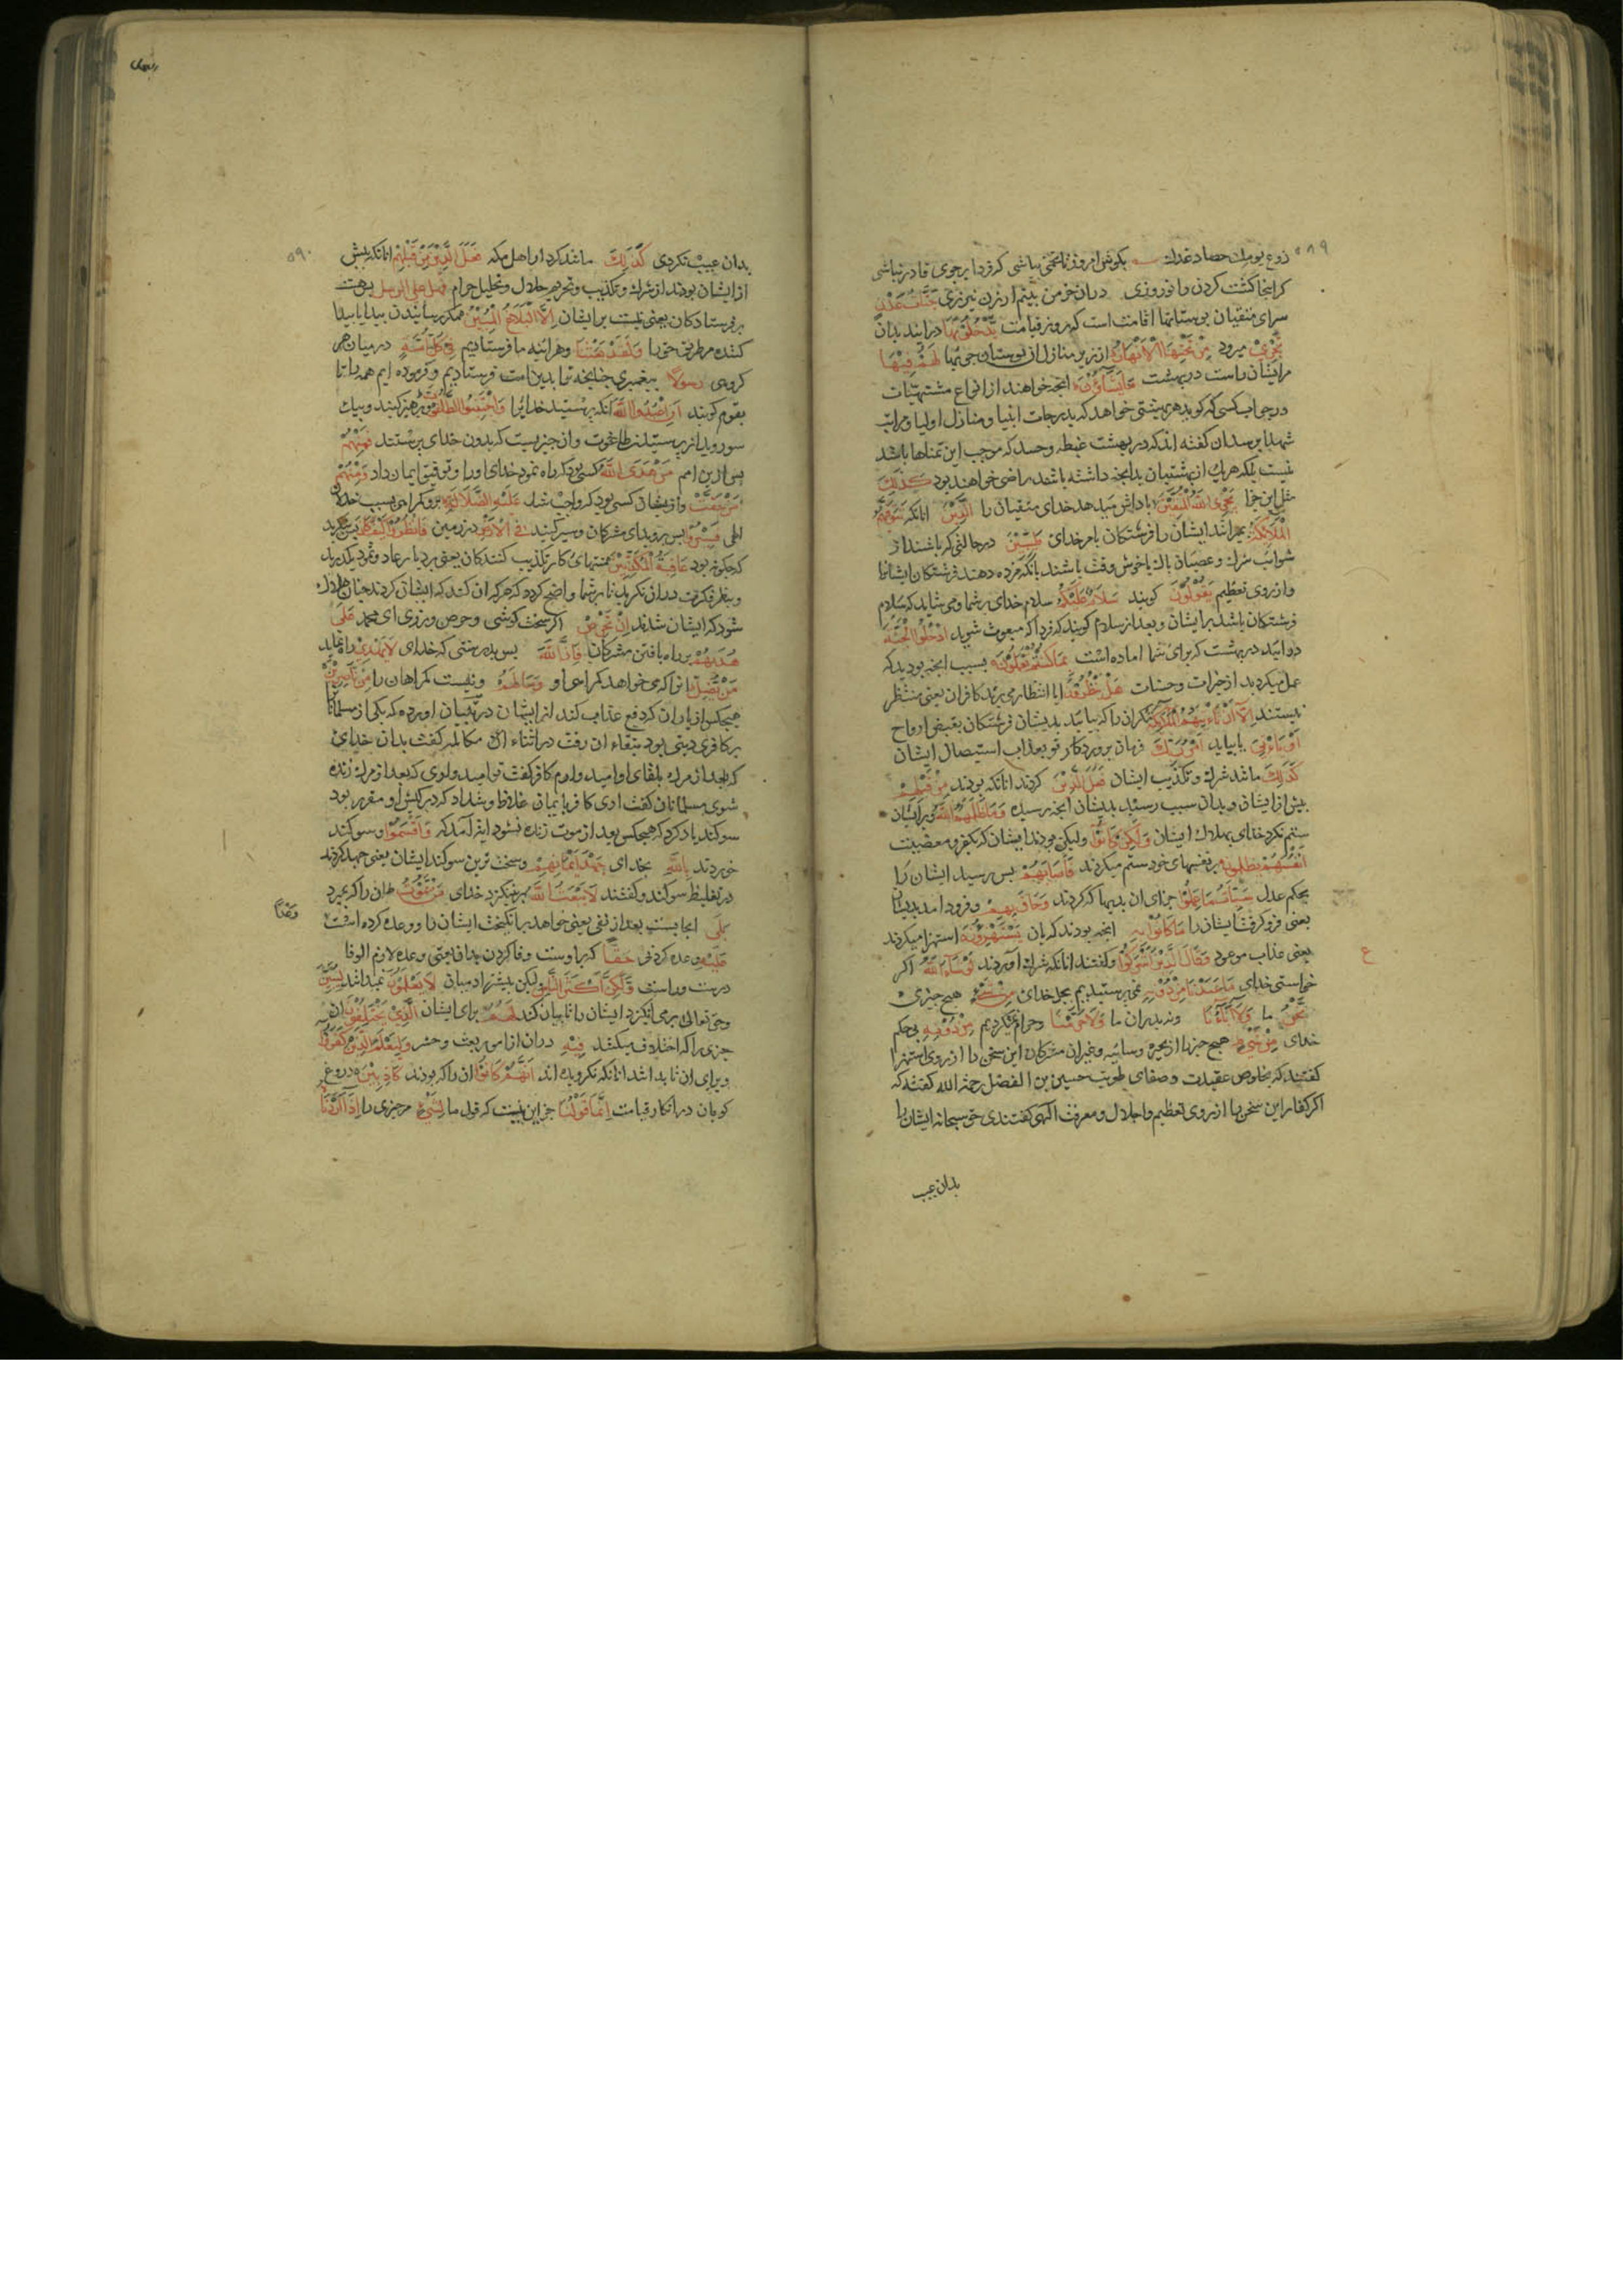 زوع یومك حصاد غدك بكوش امروز تا تخمی بپاشی كه فردا بر جوی قادر نباشی
كر اینجا كشت كردن را نورزی دران خرمن بنیم ارزن نیرزی جَنَّاتُ عَدْنٍ
سرای متقیان بوستانها اقامت است كه روز قیامت یَدْخُلُونَهَا درایند بدان
تَجْرِی میرود مِنْ تَحْتِهَا الْاَنْهَارُ از زیر منازل از بوستان جویها لَهُمْ فِیْهَا
مرایشان راست در بهشت مَا یَشَآؤُنَ انچه خواهند از انواع مشتهیات
در جواب كسی كه كوید هر بهشتی خواهد كه بدرجات انبیا و منازل اولیا و مراتب
شهدا برسد ان كفته اند كه در بهشت غبطه و حسد كه موجب این تمناها باشد
نیست بلكه هر یك از بهشتیان بدانچه داشته باشند راضی خواهند بود كَذٰلِكَ
مثل این جزا یَجْزِی اللّٰهُ الْمُتَّقِیْنَ پاداش میدهد خدای متقیان را الَّذِیْنَ انانكه تَتَوَفّٰهُمُ
الْمَلٰٓئِكَةُ بمیرانند ایشان را فرشتكان بامر خدای طَیِّبِیْنَ در حالتی كه باشند از
شوائب شرك و عصیان پاك یا خوش وقت باشند بانكه مژده دهند فرشتكان ایشانرا
و از روی تعظیم یَقُوْلُوْنَ كویند سَلَامٌ عَلَیْكُمْ سلام خدای بر شما و می شاید كه سلام
فرشتكان باشد بر ایشان و بعد از سلام كویند كه فردا كه مبعوث شوید ادْخُلُوا الْجَنَّةَ
درایید در بهشت كه برای شما اماده است بِمَا كُنْتُمْ تَعْمَلُوْنَ بسبب انچه بودید كه
عمل میكردید از خیرات و حسنات هَلْ یَنْظُرُوْنَ ایا انتظار می برند كافران یعنی منتظر
نیستند اِلَّآ اَنْ تَاْتِیَهُمُ الْمَلٰٓئِكَةُ مكر ان را كه بیایند بدیشان فرشتكان بقبض ارواح
اَوْ یَاْتِیَ یا بیاید اَمْرُ رَبِّكَ فرمان پروردكار تو بعذاب استیصال ایشان
كَذٰلِكَ مانند شرك و تكذیب ایشان فَعَلَ الَّذِیْنَ كردند انانكه بودند مِنْ قَبْلِهِمْ
پیش از ایشان و بدان سبب رسید بدیشان انچه رسید وَمَا ظَلَمَهُمُ اللّٰهُ و بر ایشان
ستم نكرد خدای بهلاك ایشان وَلٰكِنْ كَانُوْٓا ولیكن بودند ایشان كه بكفر و معصیت
اَنْفُسَهُمْ یَظْلِمُوْنَ بر نفسهای خود ستم میكردند فَاَصَابَهُمْ پس رسید ایشان را
بحكم عدل سَیِّاٰتُ مَا عَمِلُوْا جزای ان بدیها كه كردند وَحَاقَ بِهِمْ و فرود امد بدیشان
یعنی فرو كرفت ایشانرا مَا كَانُوْا بِهٖ انچه بودند كه بان یَسْتَهْزِؤُنَ استهزا میكردند
یعنی عذاب موعود وَقَالَ الَّذِیْنَ اَشْرَكُوْا و كفتند انانكه شرك اوردند لَوْ شَآءَ اللّٰهُ اكر
خواستی خدای مَا عَبَدْنَا مِنْ دُوْنِهٖ نمی پرستیدیم بجز خدای مِنْ شَیْءٍ هیچ چیزی
نَحْنُ ما وَلَآ اٰبَآؤُنَا و نه پدران ما وَلَا حَرَّمْنَا و حرام نمیكردیم مِنْ دُوْنِهٖ بی حكم
خدای مِنْ شَیْءٍ هیچ چیز را از بحیره و سائبه و غیران مشركان این سخن را از روی استهزا
كفتند نه بخلوص عقیدت و صفای طویت حسین بن الفضل رحمه الله كفته كه
اكر كفار این سخن را از روی تعظیم و اجلال و معرفت الهی كفتندی حق سبحانه ایشان را
بدان عیب
۵۸۹
ع
۵۹۰
بدان عیب نكردی كَذٰلِكَ مانند كردار اهل مكه فَعَلَ الَّذِیْنَ مِنْ قَبْلِهِمْ انانكه پیش
از ایشان بودند از شرك و تكذیب و تحریم حلال و تحلیل حرام فَهَلْ عَلَی الرُّسُلِ پس هست
بر فرستادكان یعنی نیست بر ایشان اِلَّا الْبَلَاغُ الْمُبِیْنُ مكر رسانیدن پیدا یا پیدا
كننده مر طریق حق را وَلَقَدْ بَعَثْنَا و هر اینه ما فرستادیم فِیْ كُلِّ اُمَّةٍ در میان هر
كروهی رَسُوْلًا پیغمبری چنانچه ترا بدین امت فرستادیم و فرموده ایم همه را تا
بقوم كویند اَنِ اعْبُدُوا اللّٰهَ انكه پرستید خدایرا وَاجْتَنِبُوا الطَّاغُوْتَ و پرهیز كنید و بیك
سو روید از پرستیدن طاغوت و ان چیزیست كه بدون خدای پرستند فَمِنْهُمْ
پس از این امم مَنْ هَدَی اللّٰهُ كسی بود كه راه نمود خدای او را و توفیق ایمان داد وَمِنْهُمْ
مَنْ حَقَّتْ و از ایشان كسی بود كه واجب شد عَلَیْهِ الضَّلَالَةُ برو كمراهی بسبب خذلان
الهی فَسِیْرُوْا پس بروید ای مشركان و سیر كنید فِی الْاَرْضِ در زمین فَانْظُرُوْا كَیْفَ كَانَ پس بنكرید
كه چكونه بود عَاقِبَةُ الْمُكَذِّبِیْنَ منتهای كار تكذیب كنندكان یعنی بر دیار عاد و ثمود بكذرید
و بنظر فكرت دران نكرید تا بر شما واضح كردد كه هر كه ان كند كه ایشان كردند چنان هلاك
شود كه ایشان شدند اِنْ تَحْرِصْ اكر سخت كوشی و حرص ورزی ای محمد عَلٰی
هُدٰىهُمْ بر راه یافتن مشركان فَاِنَّ اللّٰهَ پس بدرستی كه خدای لَا یَهْدِیْ راه ننماید
مَنْ یُّضِلُّ انرا كه می خواهد كمراهی او وَمَا لَهُمْ و نیست كمراهان را مِنْ نّٰصِرِیْنَ
هیچكس از یاران كه دفع عذاب كند از ایشان در تبیان اورده كه یكی از مسلمانان
بر كافری دینی بود بتقاضاء ان رفت در اثناء ان مكالمه كفت بدان خدای
كه بعد از مرك بلقای او امید وارم كافر كفت تو امید واری كه بعد از مرك زنده
شوی مسلمانان كفت اری كافر بایمان غلاظ و شداد كه در كیش او مقرر بود
سوكند یاد كرد كه هیچكس بعد از موت زنده نشود ایة امد كه وَاَقْسَمُوْا و سوكند
خوردند بِاللّٰهِ بخدای جَهْدَ اَیْمَانِهِمْ و سخت ترین سوكند ایشان یعنی جهد كردند
در تغلیظ سوكند و كفتند لَا یَبْعَثُ اللّٰهُ بر نینكیزد خدای مَنْ یَّمُوْتُ هر ان را كه بمیرد
بَلٰی ایجابست بعد از نفی یعنی خواهد بر انكیخت ایشان را و وعده كرده است
وَعْدًا
عَلَیْهِ وعده كردنی حَقًّا كه بر اوست وفا كردن بدان یعنی وعده لازم الوفا
درست و راست وَلٰكِنَّ اَكْثَرَ النَّاسِ لیكن بیشتر ادمیان لَا یَعْلَمُوْنَ نمیدانند لِیُبَیِّنَ
و حق تعالی برمی انكیزد ایشان را تا بیان كند لَهُمُ برای ایشان الَّذِیْ یَخْتَلِفُوْنَ ان
چیزی را كه اختلاف میكنند فِیْهِ دران از امر بعث و حشر وَلِیَعْلَمَ الَّذِیْنَ كَفَرُوْٓا
و برای ان تا بدانند انانكه نكرویده اند اَنَّهُمْ كَانُوْا ان را كه بودند كَاذِبِیْنَ دروغ
كویان در انكار قیامت اِنَّمَا قَوْلُنَا جز این نیست كه قول ما لِشَیْءٍ مر چیزی را اِذَآ اَرَدْنَا